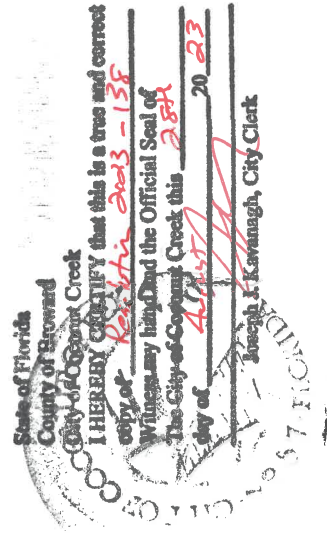 State of Florida
County of Broward
City of Coconut Creek
I HEREBY CERTIFY that this is a true and correct
copy of Resolution 2023-138
Witness my hand and the Official Seal of
The City of Coconut Creek this 28th
day of August 20 23
Joseph J. Kavanagh, City Clerk
CITY OF COCO
1967 FLORIDA